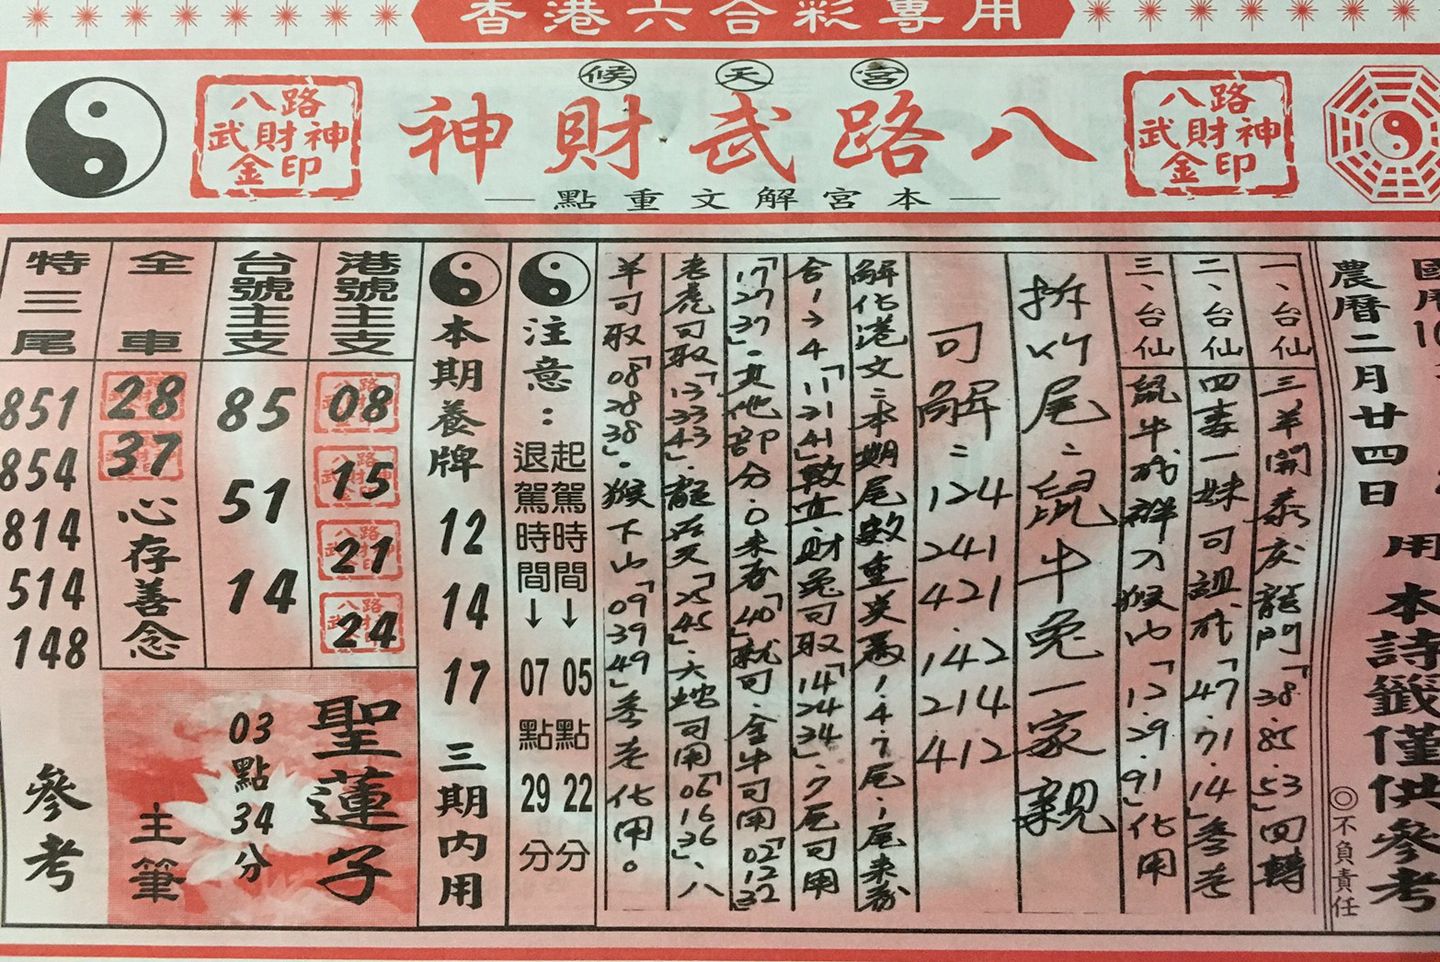 香港六合彩專用
候天宮
八路武財神
八路
武財神
金印
八路
武財神
金印
本宮解文重點
農曆二月廿四日
用
本詩籤僅供參考
◎不負責任
一、台仙 三羊開泰慶龍門「38.85.53」回轉
二、台仙 四妻一妹可組成「47.71.14」參考
三、台仙 鼠牛成群入猴山「12.29.91」化用
拆竹尾:鼠牛兔一家親
可解:124
241
421
142
214
412
解化港文:本期尾數重英為1.4.7尾.1尾來券
合1 4「11 21 41」數立.財兔可取「14 24 34」.7尾可用
「17 27 37」.其他部分.0來券「40」就可.金牛可用「02 12 32」
老虎可取「13 33 43」.龍在天「25 45」.大蛇可用「06 16 36」.八
羊可取「08 28 38」.猴下山「09 39 49」參考化用。
注意:
起駕時間↓05點22分
退駕時間↓07點29分
本期養牌 12 14 17 三期內用
港號主支
08
15
21
24
台號主支
85
51
14
全車
28
37
心存善念
特三尾
851
854
814
514
148
參考
聖蓮子
03點34分
主筆